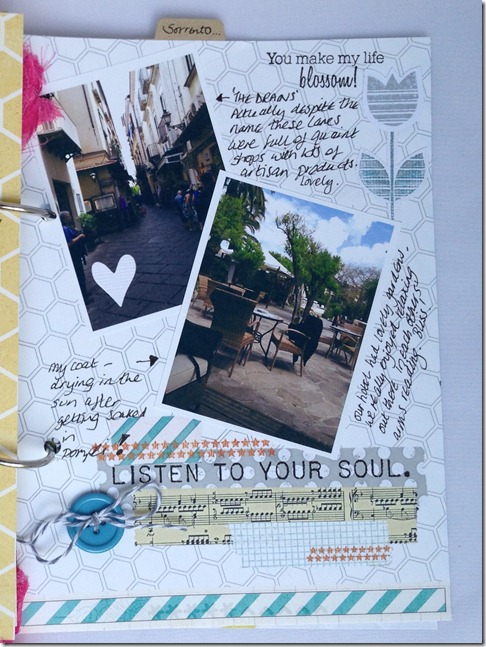 Sorrento...
You make my life
blossom!
← 'THE DRAINS'
Actually despite the
name these lanes
were full of quaint
shops with lots of
artisan products.
lovely.
my coat –
drying in the
sun after
getting soaked
in
our hotel had lovely gardens.
we really enjoyed relaxing
out there
reading. Bliss!
LISTEN TO YOUR SOUL.